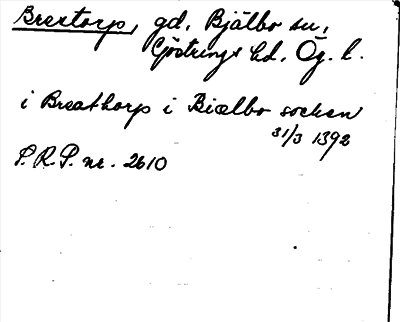 Brextorp, gd, Bjälbo sn,
Göstrings hd, Ög. l.
i Breathorp i Biælbo socken
31/3 1392
P.R.P. nr. 2610